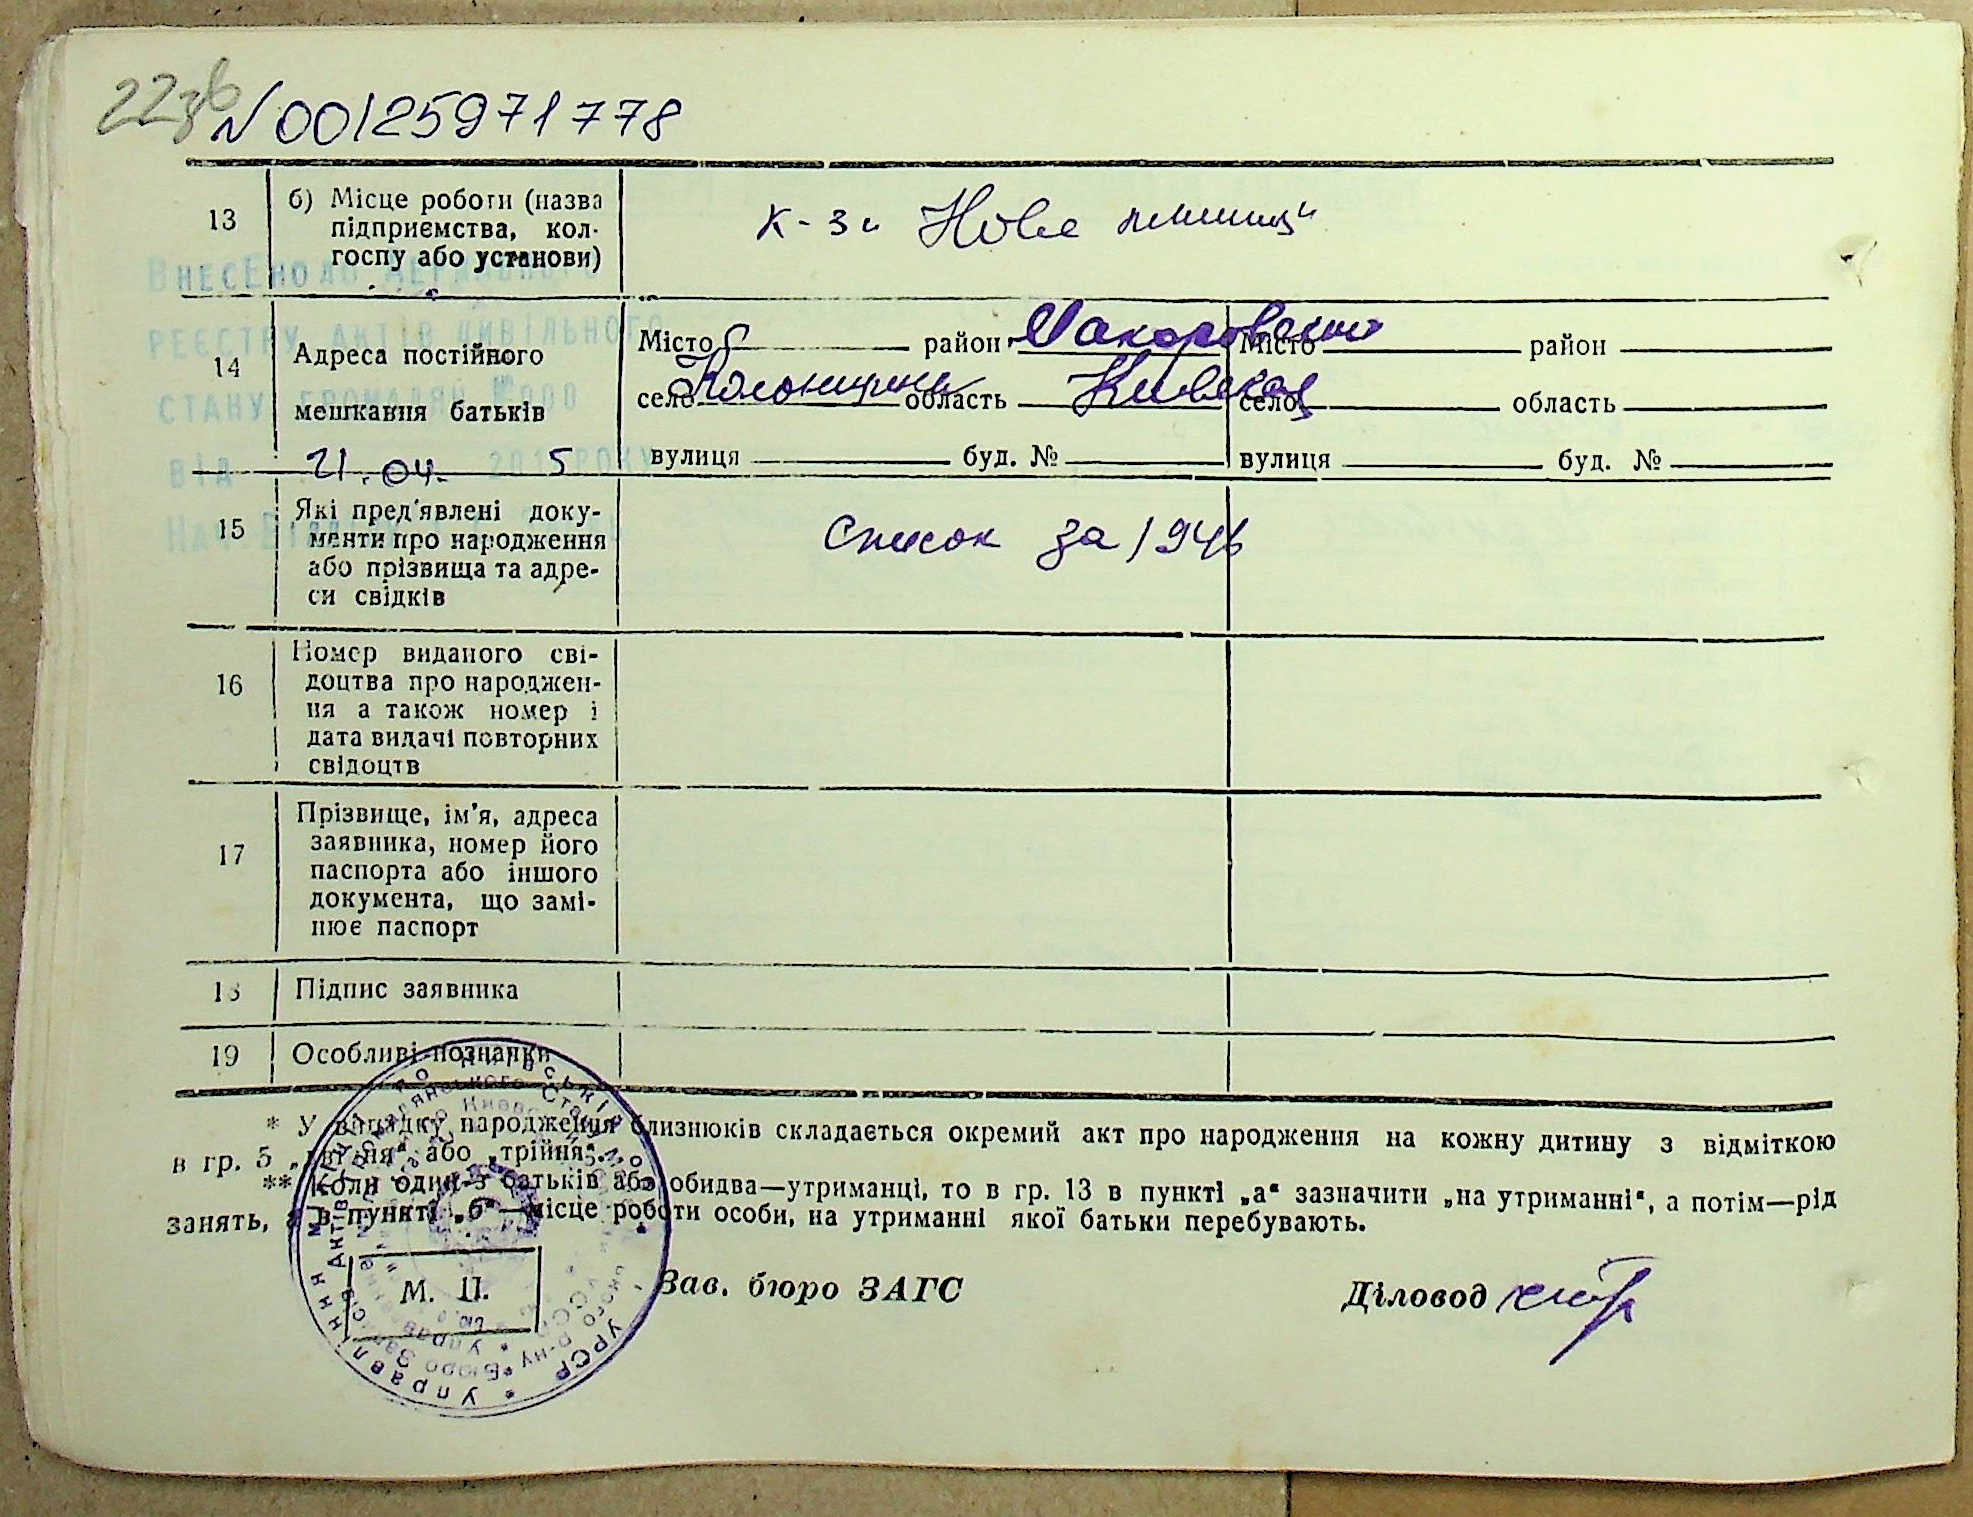 223б
N 00125971778
13
б) Місце роботи (назва
підприємства, кол-
госпу або установи)
к-з „Нове
Внесено до Державного
реєстру актів цивільного
стану громадян №000
від 21.04. 2015 року
Нач. Відділу
14
Адреса постійного
мешкання батьків
Місто район Макаровський Місто район
село Колонщина область Київская село область
вулиця буд. № вулиця буд. №
15
Які пред'явлені доку-
менти про народження
або прізвища та адре-
си свідків
Список за 1946
16
Номер виданого сві-
доцтва про народжен-
ня а також номер і
дата видачі повторних
свідоцтв
17
Прізвище, ім'я, адреса
заявника, номер його
паспорта або іншого
документа, що замі-
нює паспорт
18
Підпис заявника
19
Особливі позначки
* У випадку народження близнюків складається окремий акт про народження на кожну дитину з відміткою
в гр. 5 „двійня“ або „трійня“.
** Коли один з батьків або обидва—утриманці, то в гр. 13 в пункті „а“ зазначити „на утриманні“, а потім—рід
занять, а в пункті „б“—місце роботи особи, на утриманні якої батьки перебувають.
М. П.
Зав. бюро ЗАГС
Діловод